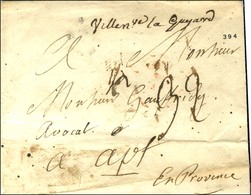 Villenve la Guyard
394
A Monsieur
Monsieur Gaufridy
Avocat
a apt
En Provence